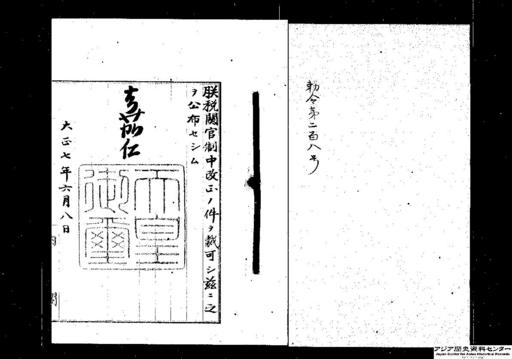 勅令第二百八号
朕税関官制中改正ノ件ヲ裁可シ茲ニ之
ヲ公布セシム
嘉仁
天皇御璽
大正七年六月八日
内閣
アジア歴史資料センター
Japan Center for Asian Historical Records